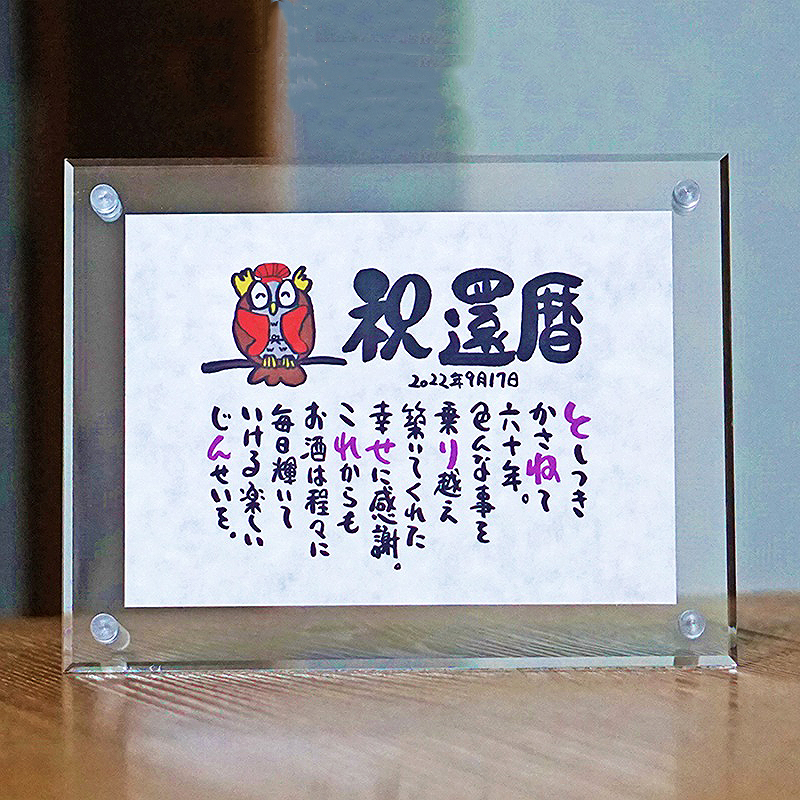 祝還暦
2022年9月17日
としつき
かさねて
六十年。
色んな事を
乗り越え
築いてくれた
幸せに感謝。
これからも
お酒は程々に
毎日輝いて
いける楽しい
じんせいを。